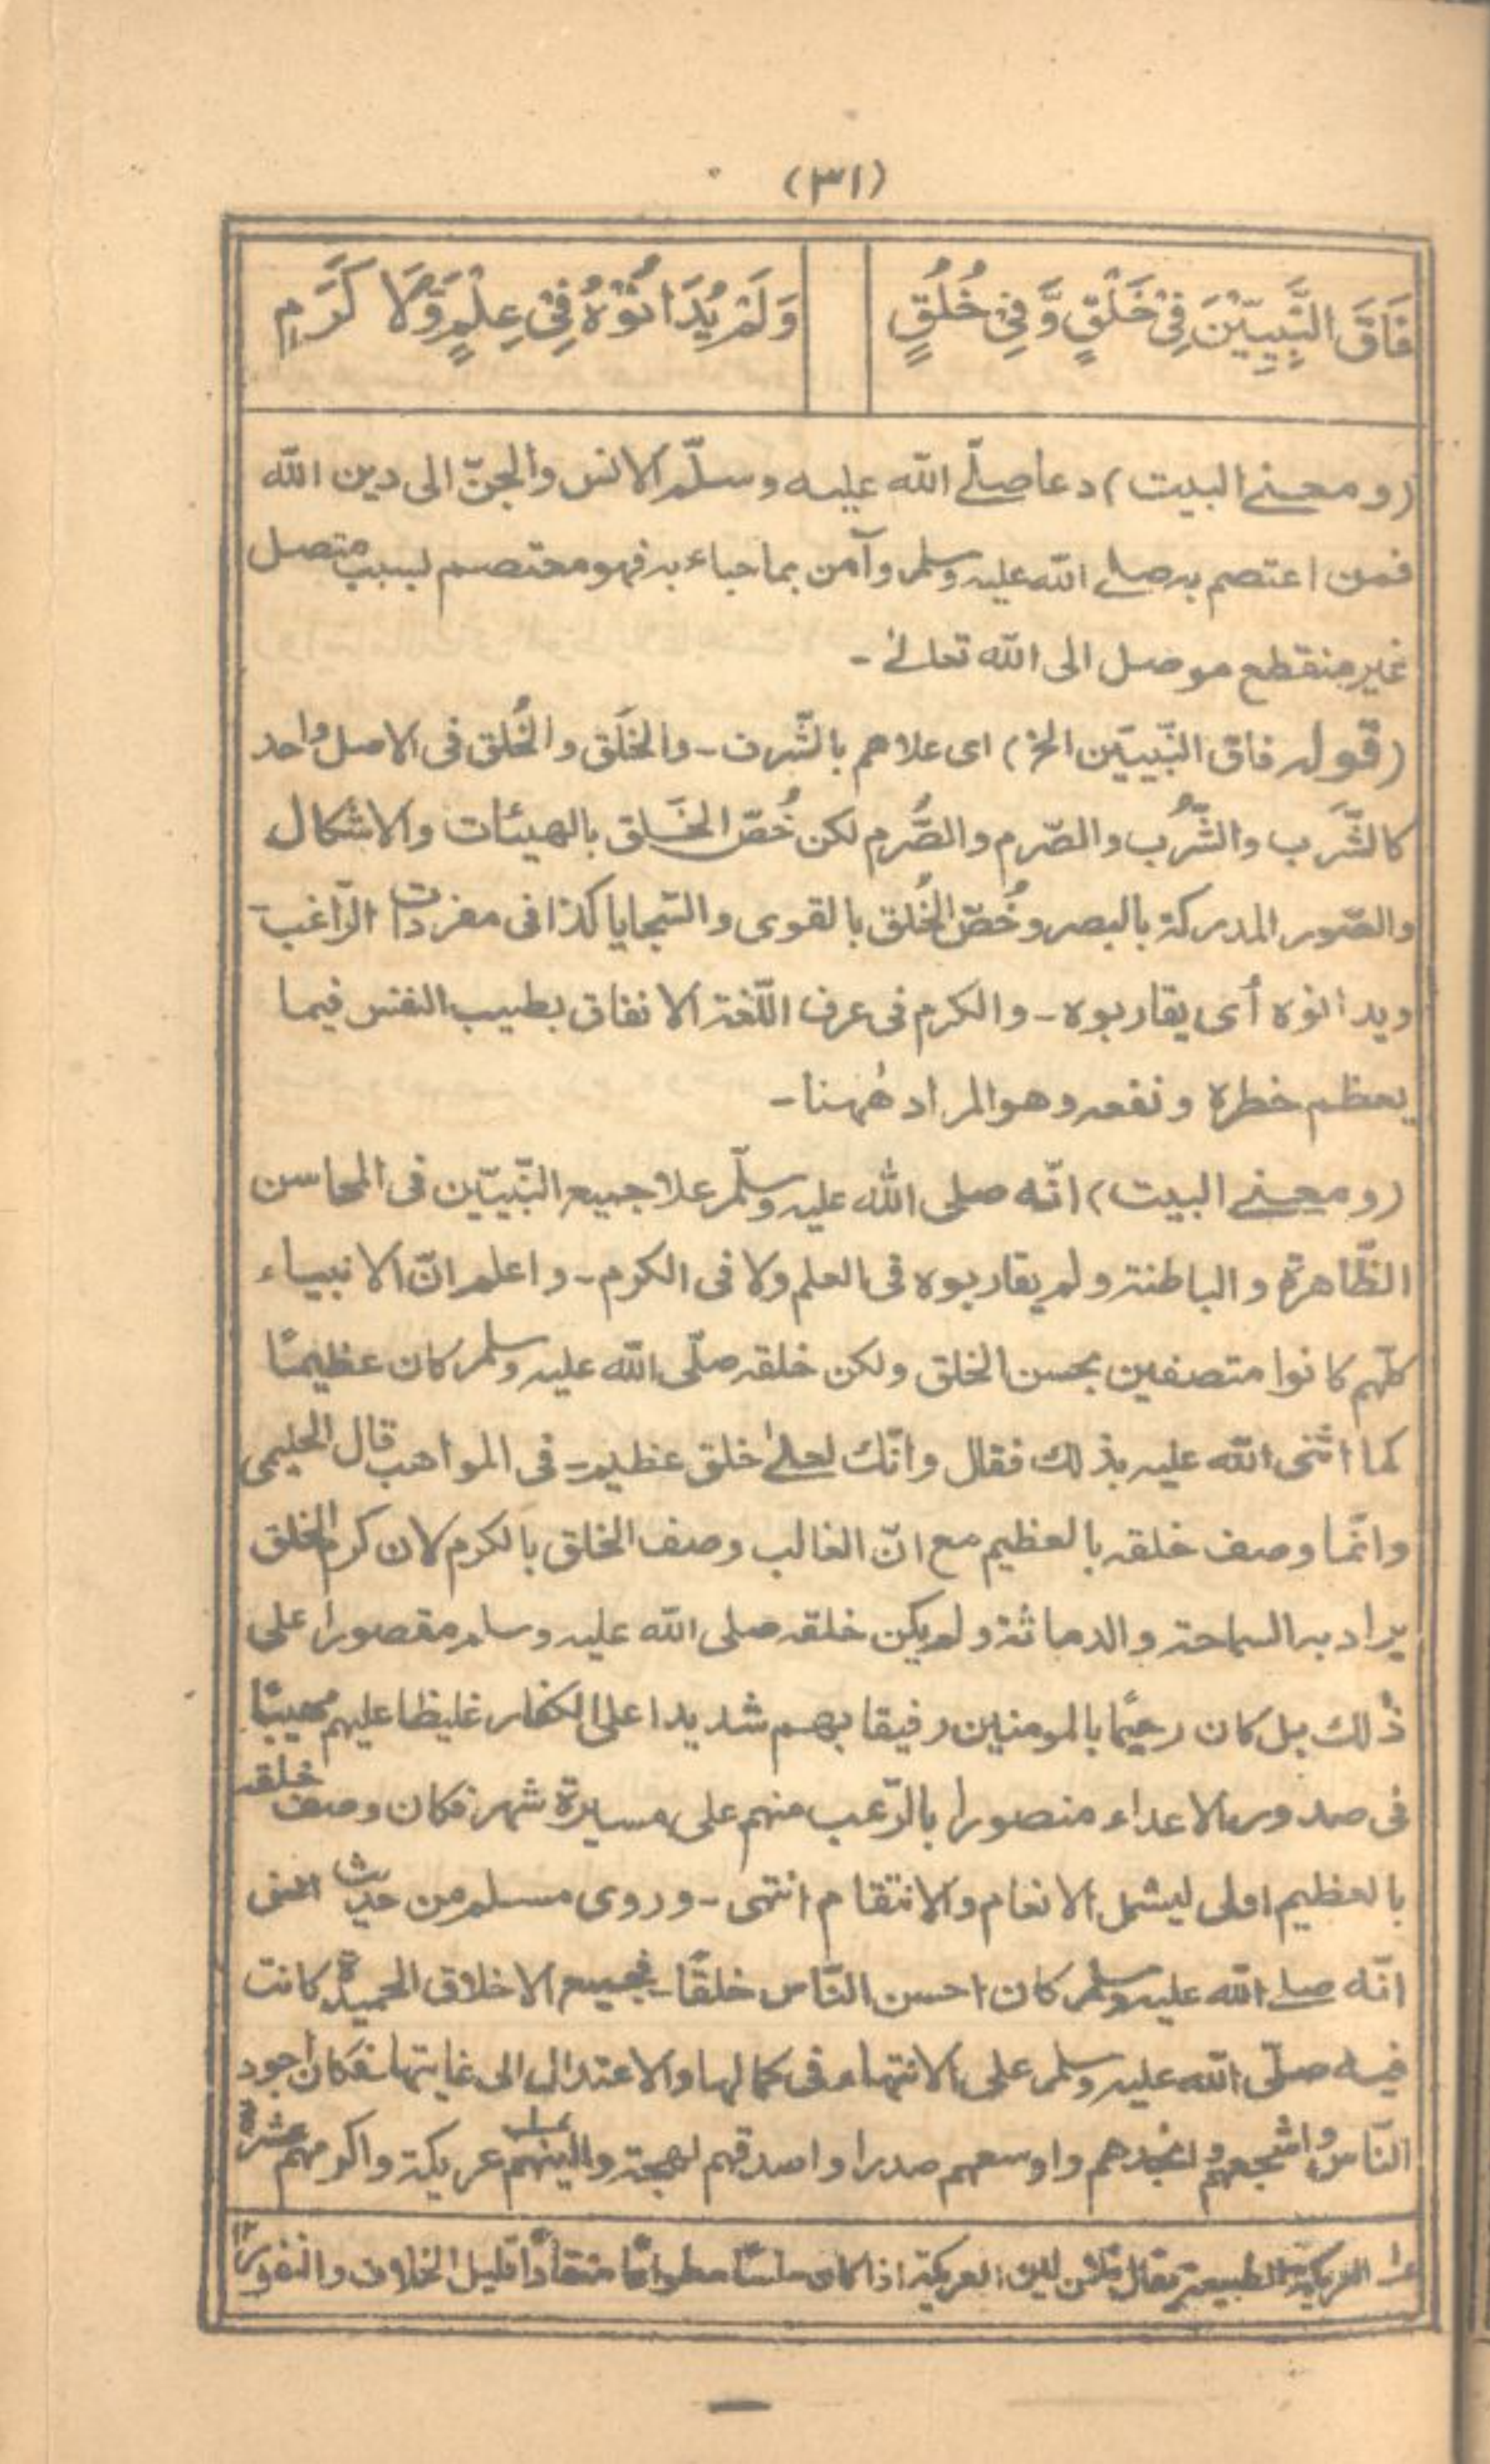 (٣١)
فَاقَ النَّبِيِّيْنَ فِيْ خَلْقٍ وَّفِيْ خُلُقٍ
وَلَمْ يُدَانُوْهُ فِيْ عِلْمٍ وَّلَا كَرَمٖ
(ومعنے البيت) دعا صلّے الله عليه وسلّم الانس والجنّ الى دين الله
فمن اعتصم به صلے الله عليه وسلم وآمن بما جاء به فهو معتصم بسبب متصل
غير منقطع موصل الى الله تعالےٰ -
(قوله فاق النّبيّين الخ) اى علاهم بالشّرف - والخَلق والخُلق فى الاصل واحد
كالشَّرب والشُّرب والصَّرم والصُّرم لكن خُصّ الخَلق بالهيئات والاشكال
والصّور المدركة بالبصر وخُصّ الخُلق بالقوى والسّجايا كذا فى مفردات الرّاغب -
ويدانوه أى يقاربوه - والكرم فى عرف اللّغة الانفاق بطيب النفس فيما
يعظم خطره ونفعه وهو المراد هٰهنا -
(ومعنے البيت) انّه صلى الله عليه وسلّم علا جميع النّبيّين فى المحاسن
الظّاهرة والباطنة ولم يقاربوه فى العلم ولا فى الكرم - واعلم انّ الانبياء
كلّهم كانوا متصفين بحسن الخلق ولكن خلقه صلّى الله عليه وسلم كان عظيمًا
كما اثنى الله عليه بذلك فقال وانّك لعلےٰ خلق عظيم - فى المواهب قال الحليمى
وانّما وصف خلقه بالعظيم مع انّ الغالب وصف الخلق بالكرم لان كرم الخلق
يراد به السماحة والدماثة ولم يكن خلقه صلى الله عليه وسلم مقصورا على
ذٰلك بل كان رحيمًا بالمومنين رفيقا بهم شديدا على الكفار غليظا عليهم مهيبًا
فى صدور الاعداء منصورا بالرّعب منهم على مسيرة شهر فكان وصف خلقه
بالعظيم اولى ليشمل الانعام والانتقام انتهى - وروى مسلم من حديث انس
انّه صلے الله عليه وسلم كان احسن النّاس خلقًا - فجميع الاخلاق الحميدة كانت
فيه صلّى الله عليه وسلم على الانتهاء فى كمالها والاعتدال الى غايتها فكان اجود
النّاس واشجعهم وانجدهم واوسعهم صدرا واصدقهم لهجة والينهم عريكة واكرمهم عشرة
عـ١ العريكة الطبيعة يقال فلان لين العريكة اذا كان سلسًا مطواعًا منقادًا قليل الخلاف والنفور ١٢